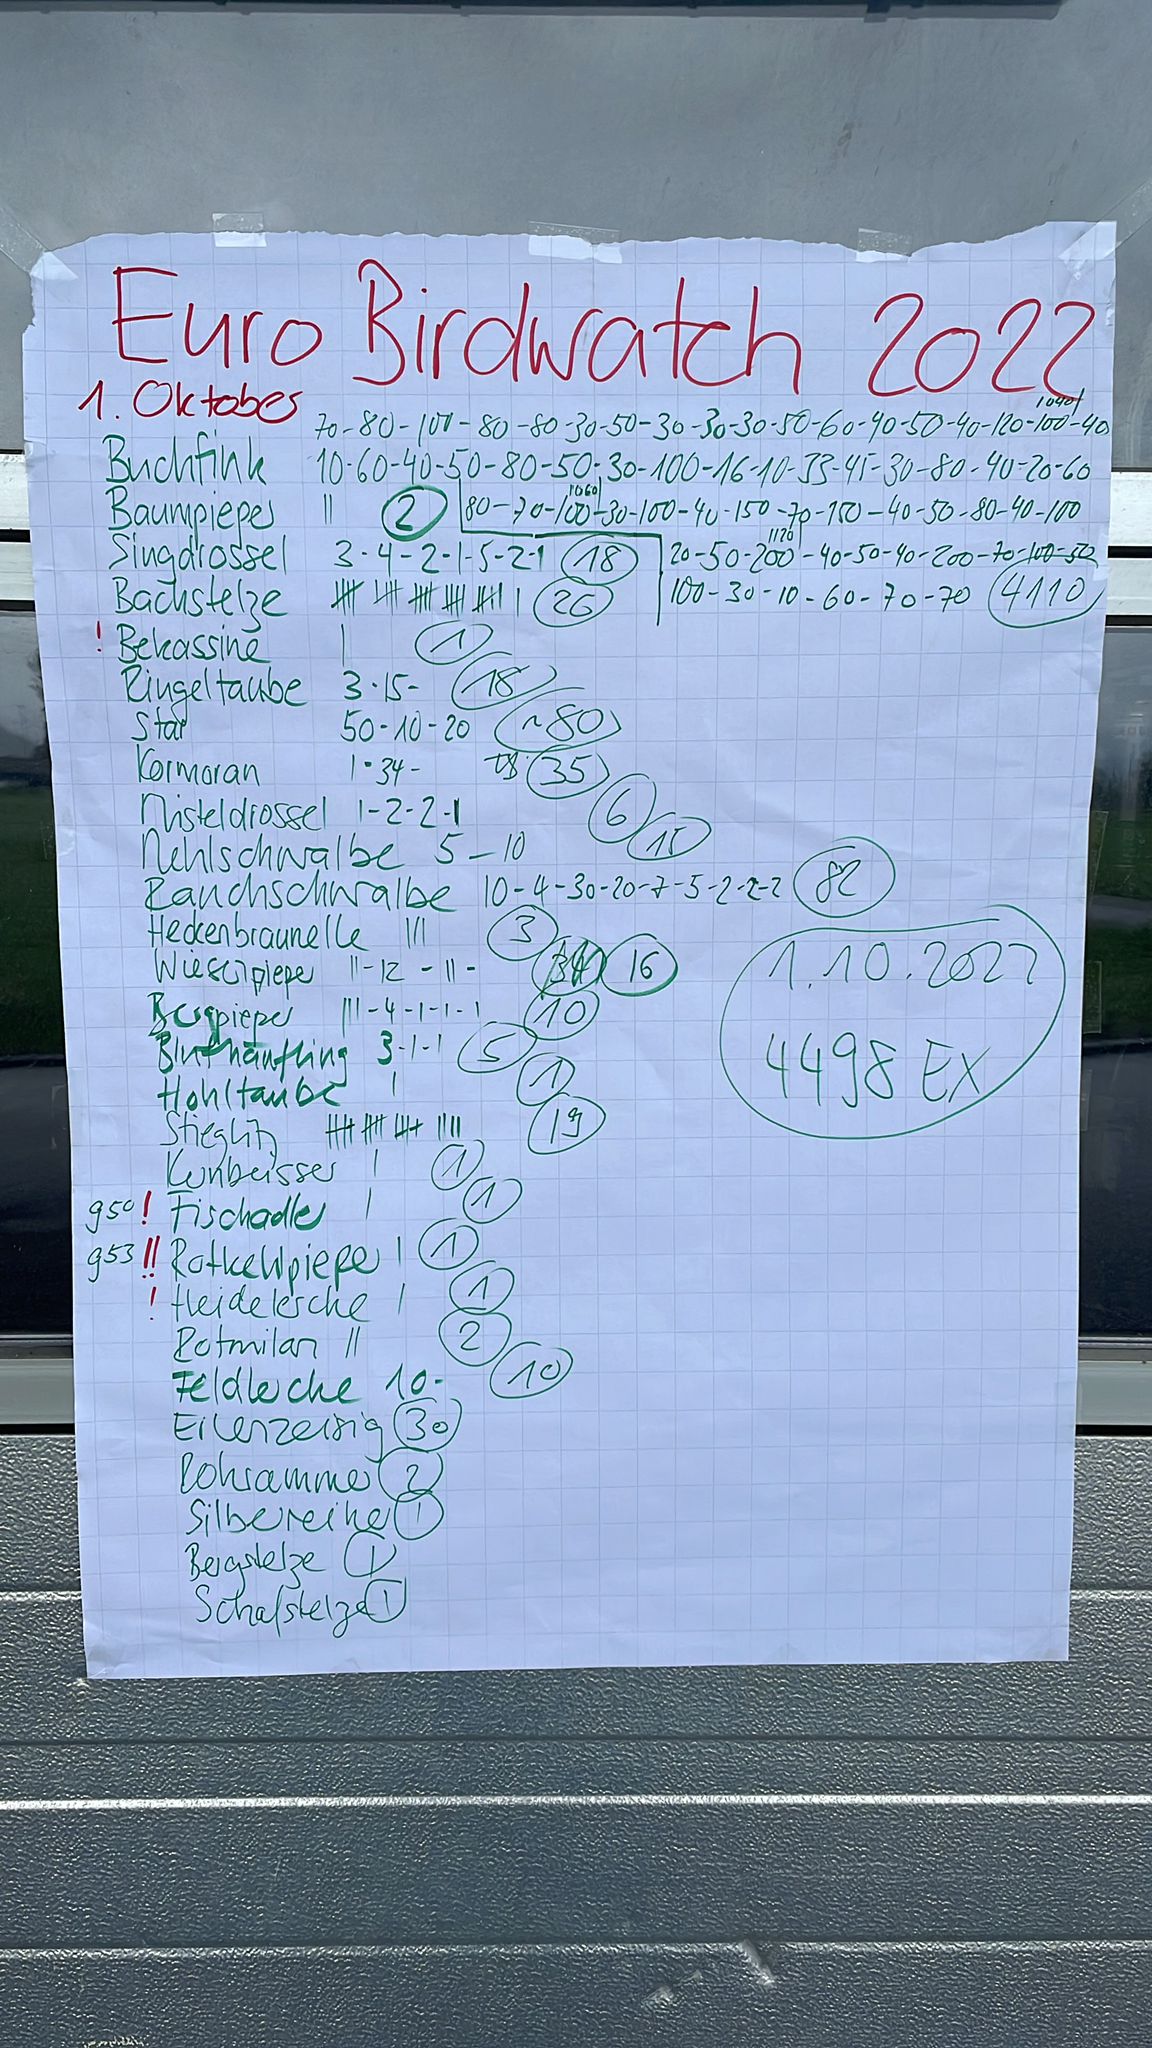 Euro Birdwatch 2022
1. Oktober
70-80-100-80-80-30-50-30-30-30-50-60-40-50-40-120-100-40
Buchfink 10-60-40-50-80-50-30-100-16-10-33-45-30-80-40-20-60
Baumpieper || 2 80-70-100-30-100-40-150-70-150-40-50-80-40-100
Singdrossel 3-4-2-1-5-2-1 18 20-50-200-40-50-40-200-70-100-50
Bachstelze 26 100-30-10-60-70-70 4110
! Bekassine | 1
Ringeltaube 3-15- 18
Star 50-10-20 ~80
Kormoran 1-34- 35
Misteldrossel 1-2-2-1 6
Mehlschwalbe 5-10 15
Rauchschwalbe 10-4-30-20-7-5-2-2-2 82
Heckenbraunelle ||| 3
Wiesenpieper ||-12-||- 16
Bergpieper |||-4-1-1-1 10
Bluthänfling 3-1-1 5
Hohltaube | 1
Stieglitz 19
Kernbeisser | 1
950 ! Fischadler | 1
953 !! Rotkehlpieper | 1
! Heidelerche | 1
Rotmilan || 2
Feldlerche 10- 10
Erlenzeisig 30
Rohrammer 2
Silbereiher 1
Bergstelze 1
Schafstelze 1
1.10.2022
4498 EX